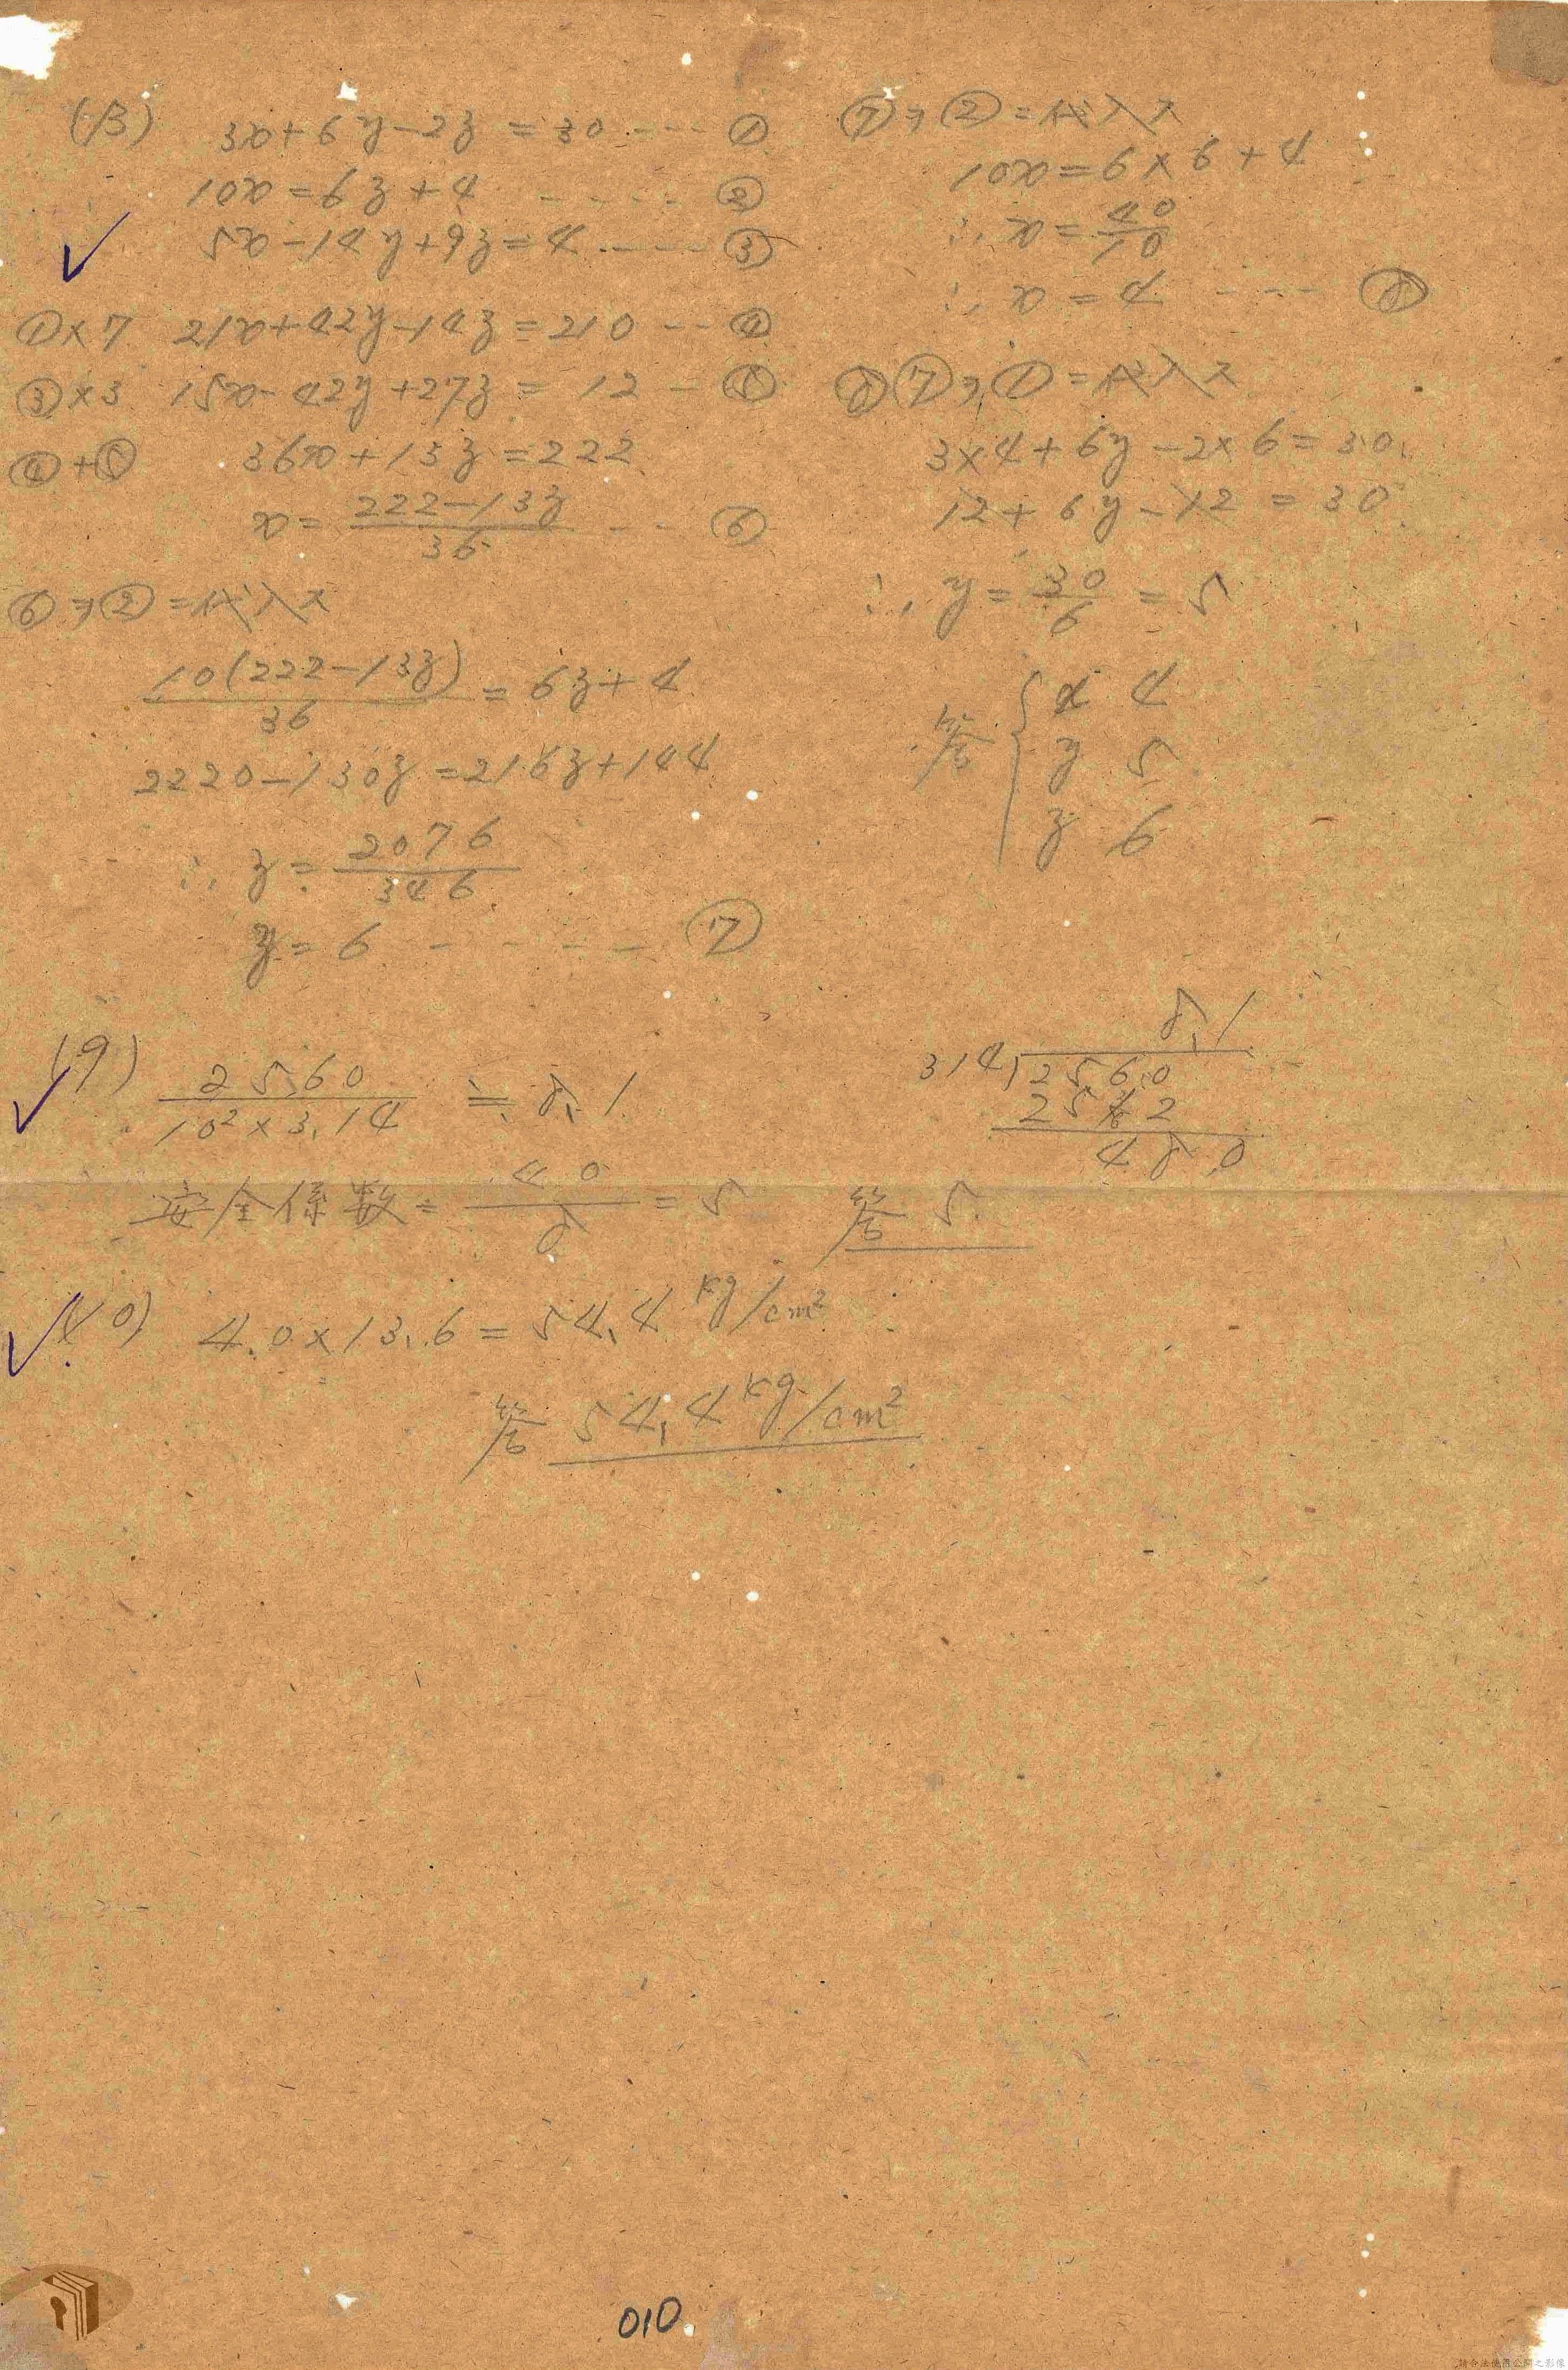 (13) 3x+6y-2z = 30 --- ①
10x=6z+4 ----- ②
5x-14y+9z=4 ---- ③
①×7 21x+42y-14z=210 -- ④
③×3 15x-42y+27z= 12 - ⑤
④+⑤ 36x+13z=222
x= (222-13z)/36 -- ⑥
⑥ヲ②ニ代入ス
10(222-13z)/36 = 6z+4
2220-130z=216z+144
∴ z= 2076/346
z= 6 ----- ⑦
⑦ヲ②ニ代入ス
10x=6×6+4
∴ x=40/10
∴ x=4 --- ⑧
⑧⑦ヲ①ニ代入ス
3×4+6y-2×6=30
12+6y-12 = 30
∴ y=30/6 = 5
答 { x 4
y 5
z 6
(9) 2560/10²×3.14 ≒ 8.1
安全係数= 40/8 = 5 答 5.
8.1
314)2560
2512
480
(10) 4.0×13.6=54.4 kg/cm²
答 54.4 kg/cm²
010.
請合法使用公開之影像